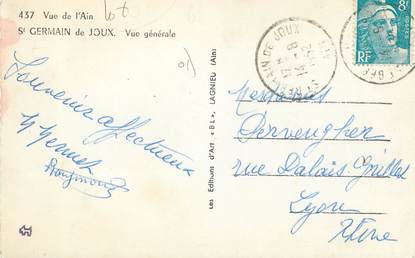 437 Vue de l'Ain
St GERMAIN de JOUX. Vue générale
Souvenir affectueux
Les Editions d'Art "BL", LAGNIEU (Ain)
ST GERMAIN DE JOUX
AIN
RF
Mesdames
rue Palais Grillet
Lyon
Rhône